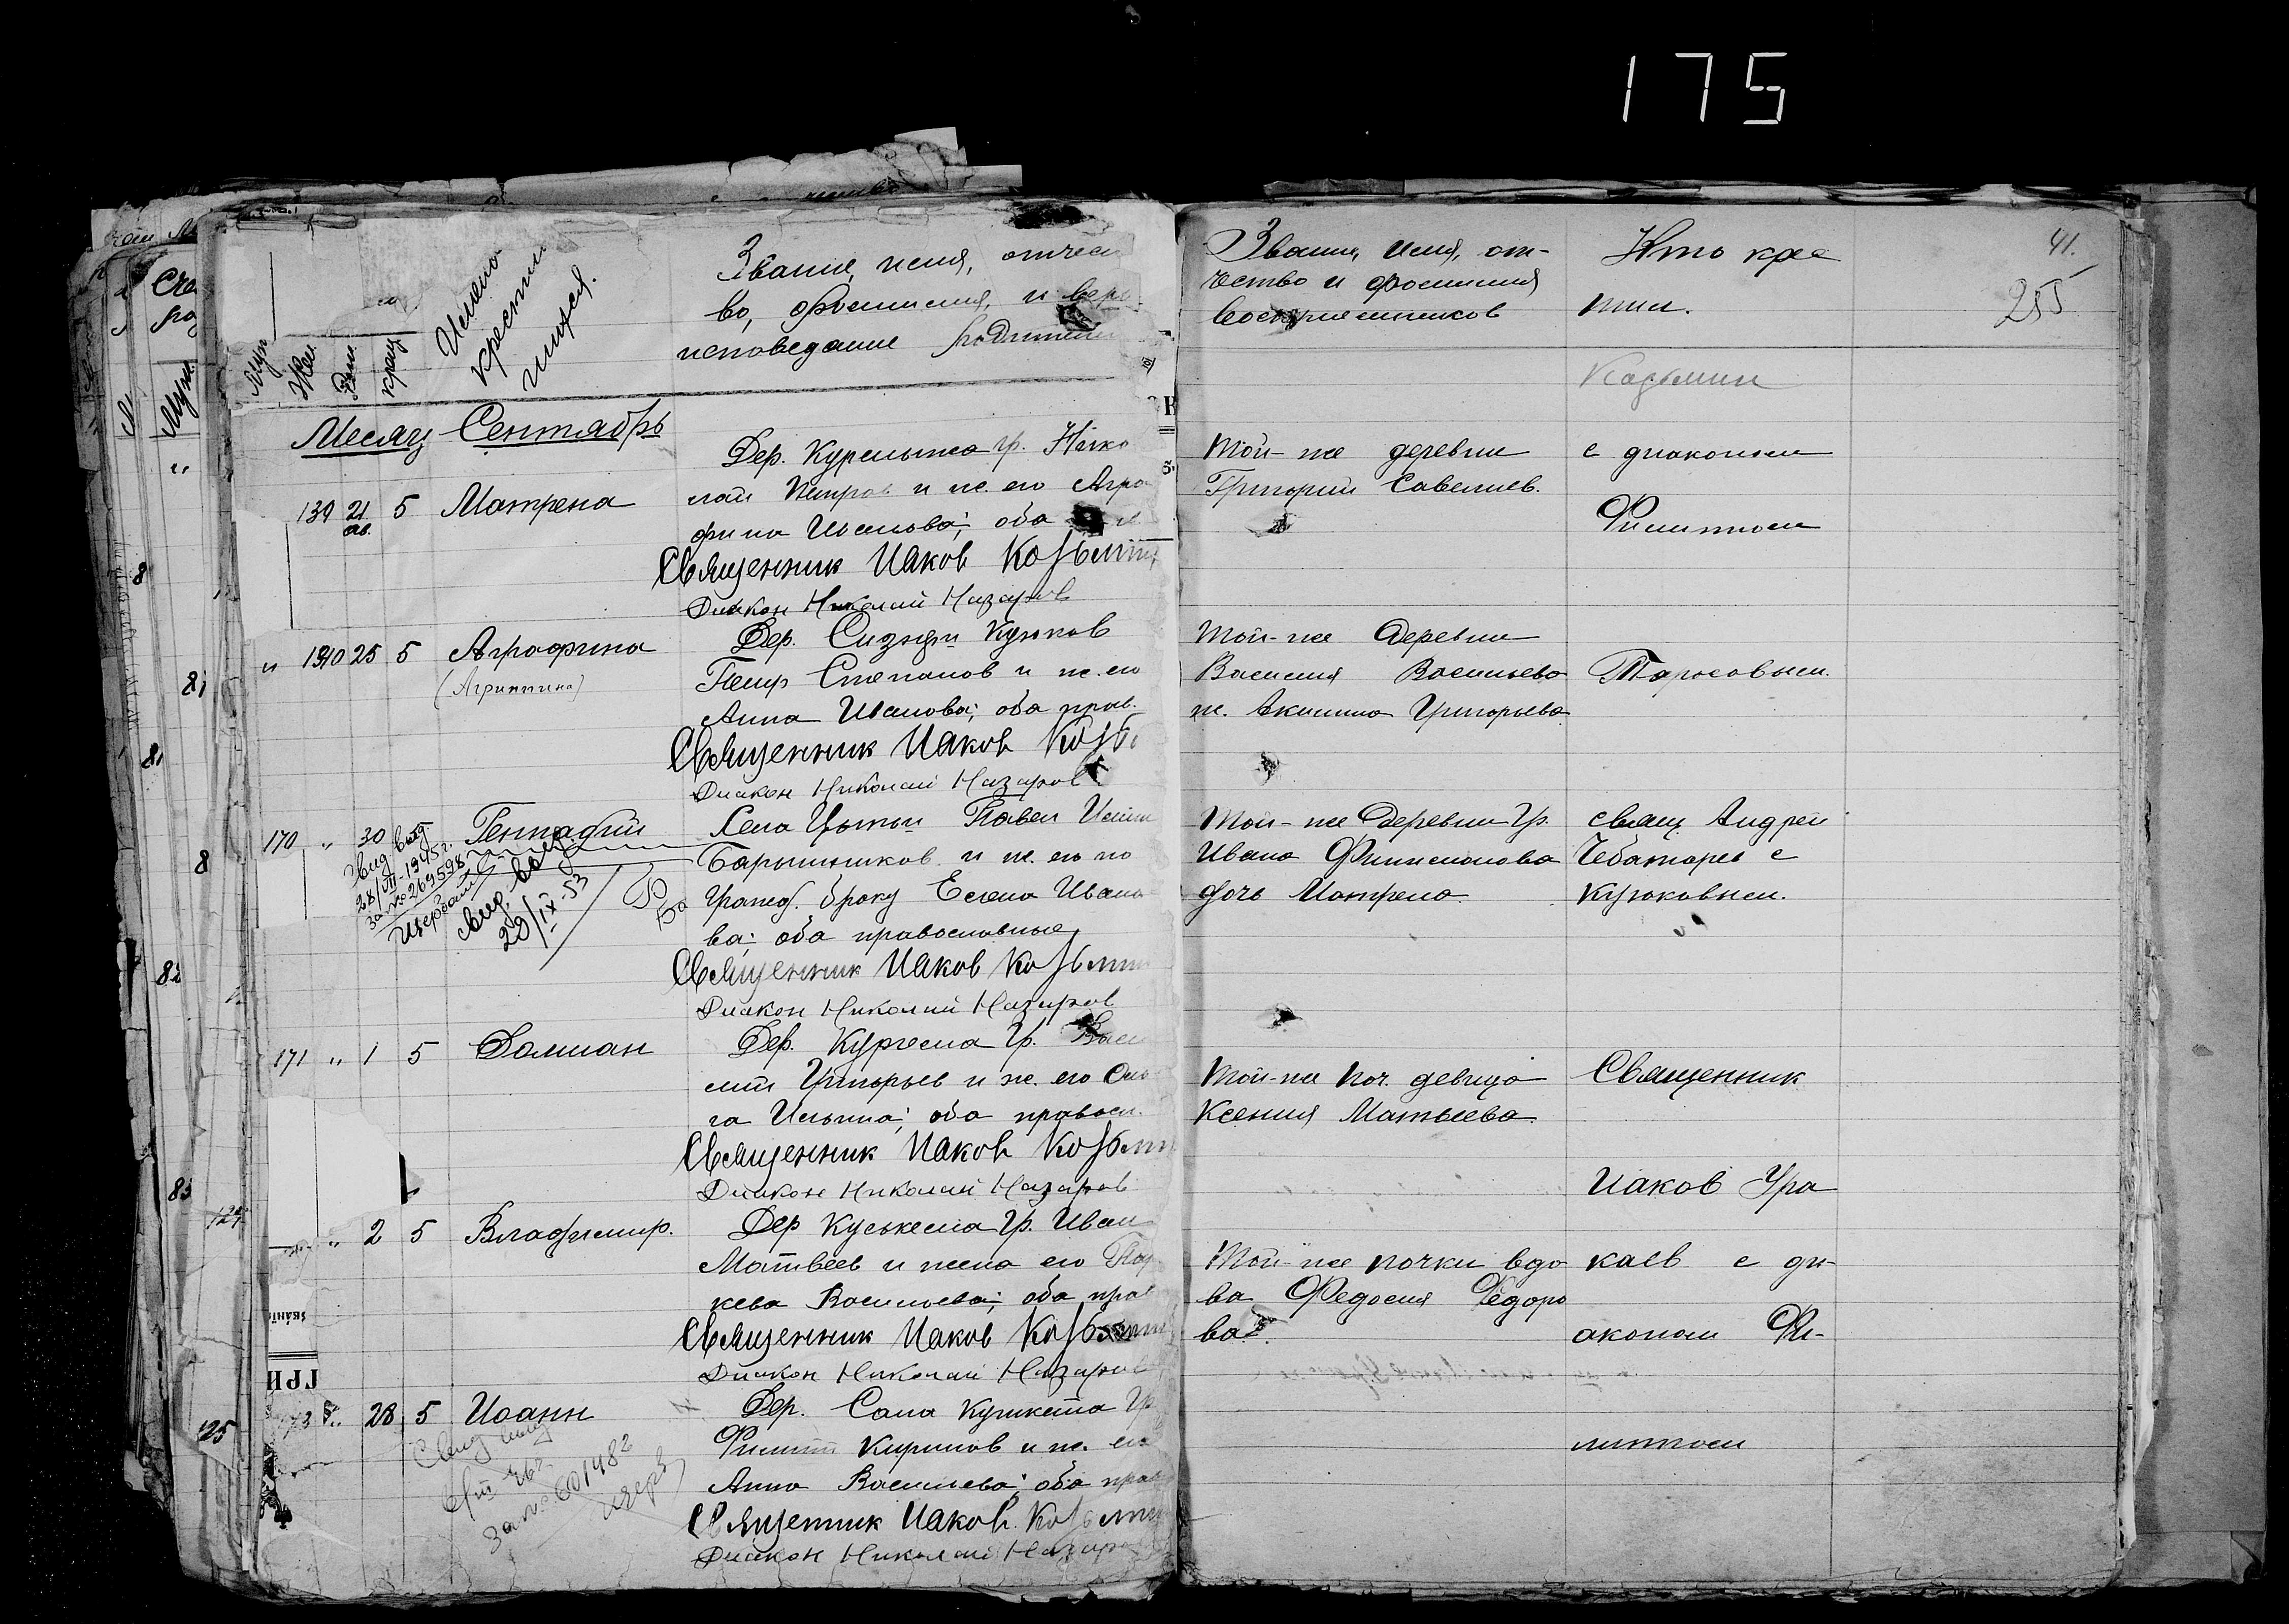 175
Муж
Жен.
Дни
крещ
Имена
крестив
шихся.
Звание, имя, отчес
во, фамилия, и веро
исповедание родители
Звание, имя, от-
чество и фамилия
восприемников
Кто кре
стил.
41.
255
Казьмин
Месяц Сентябрь
139 21 5 Матрена
ав.
Дер. Курмыжа гр. Нико
лай Петров и ж. его Агра
фина Иванова; оба
Священник Иаков Козьмин
Диакон Николай Назаров
Той-же деревни
Григорий Савелиев.
с диаконом
Филиппом
" 140 25 5 Аграфина
(Агриппина)
Дер. Кужков
Петр Степанов и ж. его
Анна Иванова; оба прав.
Священник Иаков Козь
Диакон Николай Назаров
Той-же деревни
Василия Васильева
ж. Акилина Григорьева
Тарасовым.
170 " 30 Геннадий
Свид выд
28/VII-1945 г.
за № 269598
Свид. выд
29/IX-53
Села Павел
Барышников и ж. его по
гражд. браку Елена Ивано
ва; оба православные
Священник Иаков Козьмин
Диакон Николай Назаров
Той-же деревни гр.
Ивана Филимонова
дочь Матрена
свящ Андрей
Чебатарев с
Кужковым.
171 " 1 5 Домиан
Дер. Кургема гр. Васи
лий Григорьев и ж. его Оль
га Ильина; оба правосл.
Священник Иаков Козьмин
Диакон Николай Назаров
Той-же поч. девица
Ксения Матвеева.
Священник
Иаков Ура
" 2 5 Владимир.
Дер Куськема гр. Иван
Матвеев и жена его Пар
кева Васильева; оба прав
Священник Иаков Козьмин
Диакон Николай Назаров
Той-же почки вдо
ва Федосия Федоро
ва.
каев с ди-
аконом Фи-
173 " 28 5 Иоанн
Свид выд
за № 601482
Дер. Сала Кушкета гр
Филипп Кирилов и ж. его
Анна Васильева; оба прав
Священник Иаков Козьмин
Диакон Николай Назаров
липпом